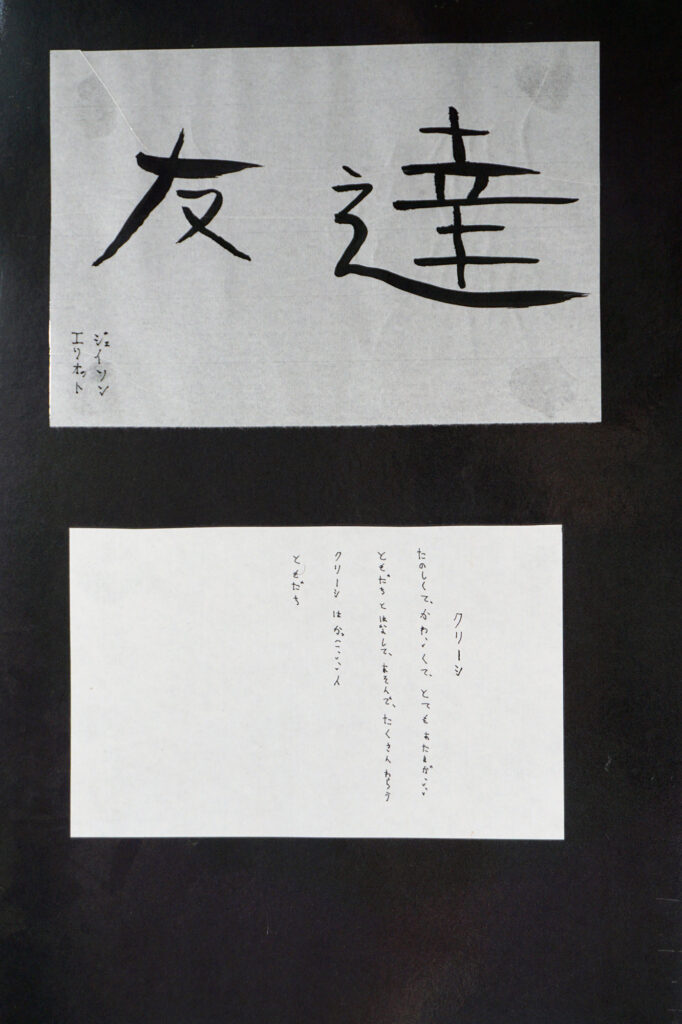 友達
ジェイソン
エリオット
クリーシ
たのしくて、かわいくて、とても あたまがいい
ともだち と はなして、あそんで、たくさん わらう
クリーシ は かっこいい人
ともだち